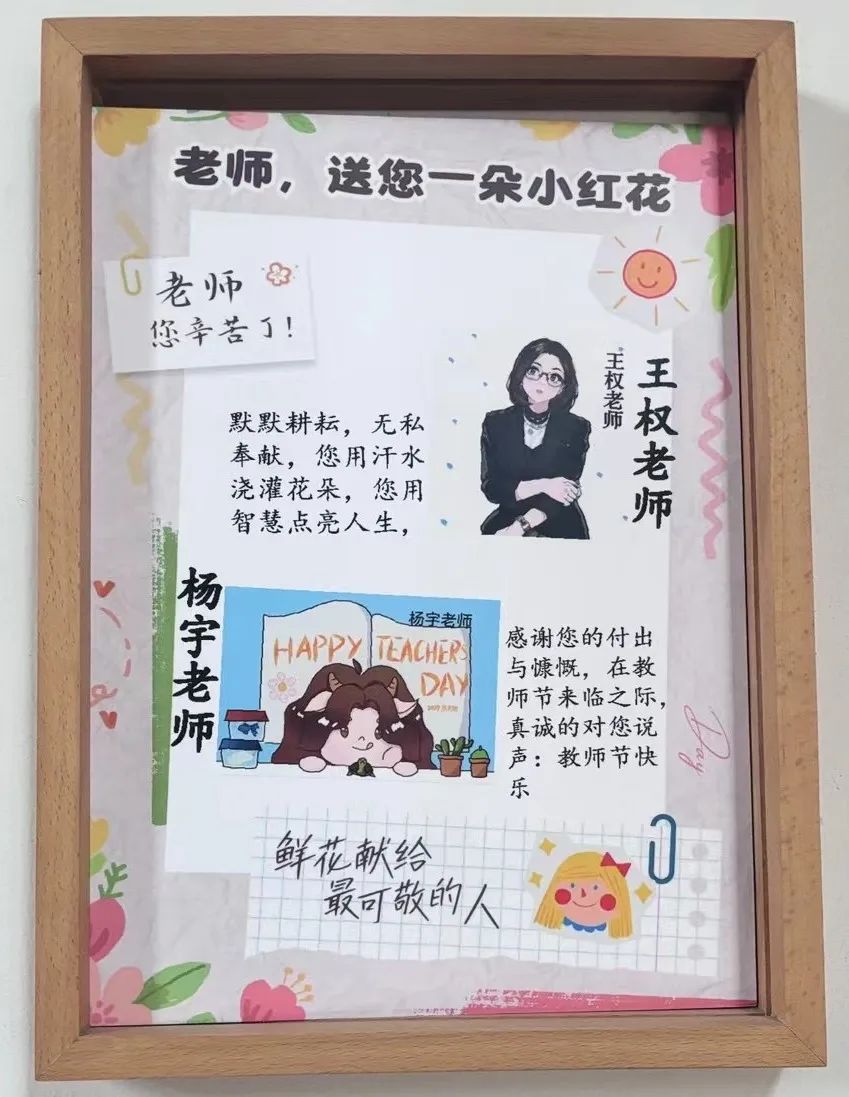 老师，送您一朵小红花
老师
您辛苦了!
王权老师
王权老师
默默耕耘，无私
奉献，您用汗水
浇灌花朵，您用
智慧点亮人生，
杨宇老师
杨宇老师
HAPPY TEACHERS
DAY
感谢您的付出
与慷慨，在教
师节来临之际，
真诚的对您说
声：教师节快
乐
Day
鲜花献给
最可敬的人